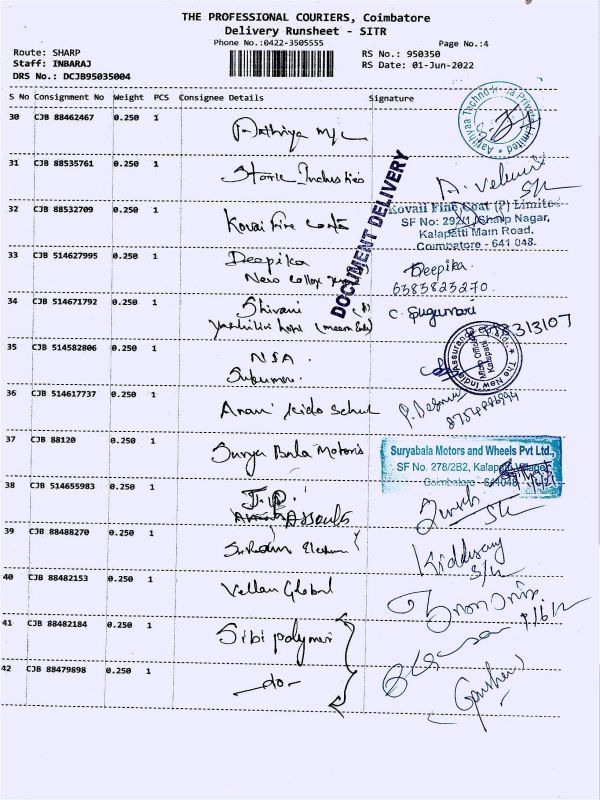 THE PROFESSIONAL COURIERS, Coimbatore
Delivery Runsheet - SITR
Phone No.:0422-3505555
Page No.:4
Route: SHARP
Staff: INBARAJ
DRS No.: DCJB95035004
RS No.: 950350
RS Date: 01-Jun-2022
S No Consignment No Weight PCS Consignee Details Signature
30 CJB 88462467 0.250 1
31 CJB 88535761 0.250 1 Stark Industries
DOCUMENT DELIVERY
32 CJB 88532709 0.250 1 Kovai Fine Coats
Kovaii Fine Coat (P) Limited
SF No: 292/1, Sharp Nagar,
Kalapatti Main Road,
Coimbatore - 641 048.
33 CJB 514627995 0.250 1 Deepika
Deepika
6383823270
34 CJB 514671792 0.250 1 Shivani
C. Sugumari
35 CJB 514582806 0.250 1 NSA
The New India Assurance
36 CJB 514617737 0.250 1
37 CJB 88120 0.250 1 Surya Bala Motors
Suryabala Motors and Wheels Pvt Ltd.,
SF No. 278/2B2, Kalapatti Village,
Coimbatore - 641048
38 CJB 514655983 0.250 1
39 CJB 88488270 0.250 1
40 CJB 88482153 0.250 1 Vellan Global
41 CJB 88482184 0.250 1 Sibi polymer
42 CJB 88479898 0.250 1 -do-